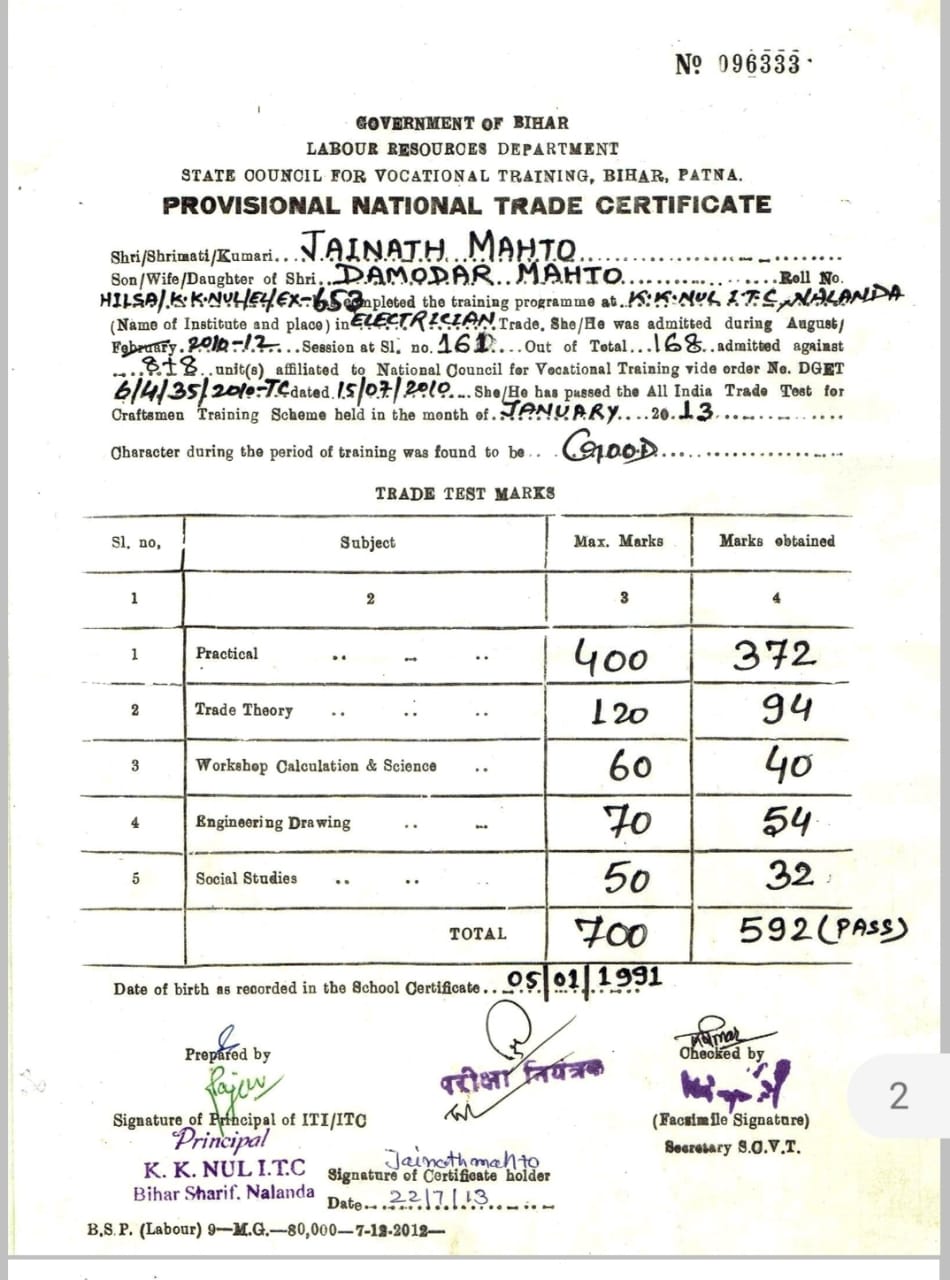 Nº 096333
GOVERNMENT OF BIHAR
LABOUR RESOURCES DEPARTMENT
STATE COUNCIL FOR VOCATIONAL TRAINING, BIHAR, PATNA.
PROVISIONAL NATIONAL TRADE CERTIFICATE
Shri/Shrimati/Kumari... JAINATH MAHTO
Son/Wife/Daughter of Shri.. DAMODAR MAHTO............ Roll No.
HILSA/K.K.NUL/EL/EX-653 completed the training programme at.. K.K.NUL I.T.C, NALANDA
(Name of Institute and place) in ELECTRICIAN Trade. She/He was admitted during August/
February. 2010-12....Session at Sl. no. 161....Out of Total...168..admitted against
....8+8..unit(s) affiliated to National Council for Vocational Training vide order No. DGET
6/4/35/2010-TC dated. 15/07/2010....She/He has passed the All India Trade Test for
Craftsmen Training Scheme held in the month of. JANUARY....20.13...............
Character during the period of training was found to be... GOOD....................
TRADE TEST MARKS
Sl. no, Subject Max. Marks Marks obtained
1 2 3 4
1 Practical .. .. .. 400 372
2 Trade Theory .. .. .. 120 94
3 Workshop Calculation & Science .. 60 40
4 Engineering Drawing .. .. 70 54
5 Social Studies .. .. 50 32
TOTAL 700 592 (PASS)
Date of birth as recorded in the School Certificate... 05/01/1991
Prepared by
Checked by
परीक्षा नियंत्रक
Signature of Principal of ITI/ITC
(Facsimile Signature)
Principal
Secretary S.C.V.T.
K. K. NUL I.T.C
Bihar Sharif. Nalanda
Jainath mahto
Signature of Certificate holder
Date.... 22/7/13............
B.S.P. (Labour) 9—M.G.—80,000—7-12-2012—
2